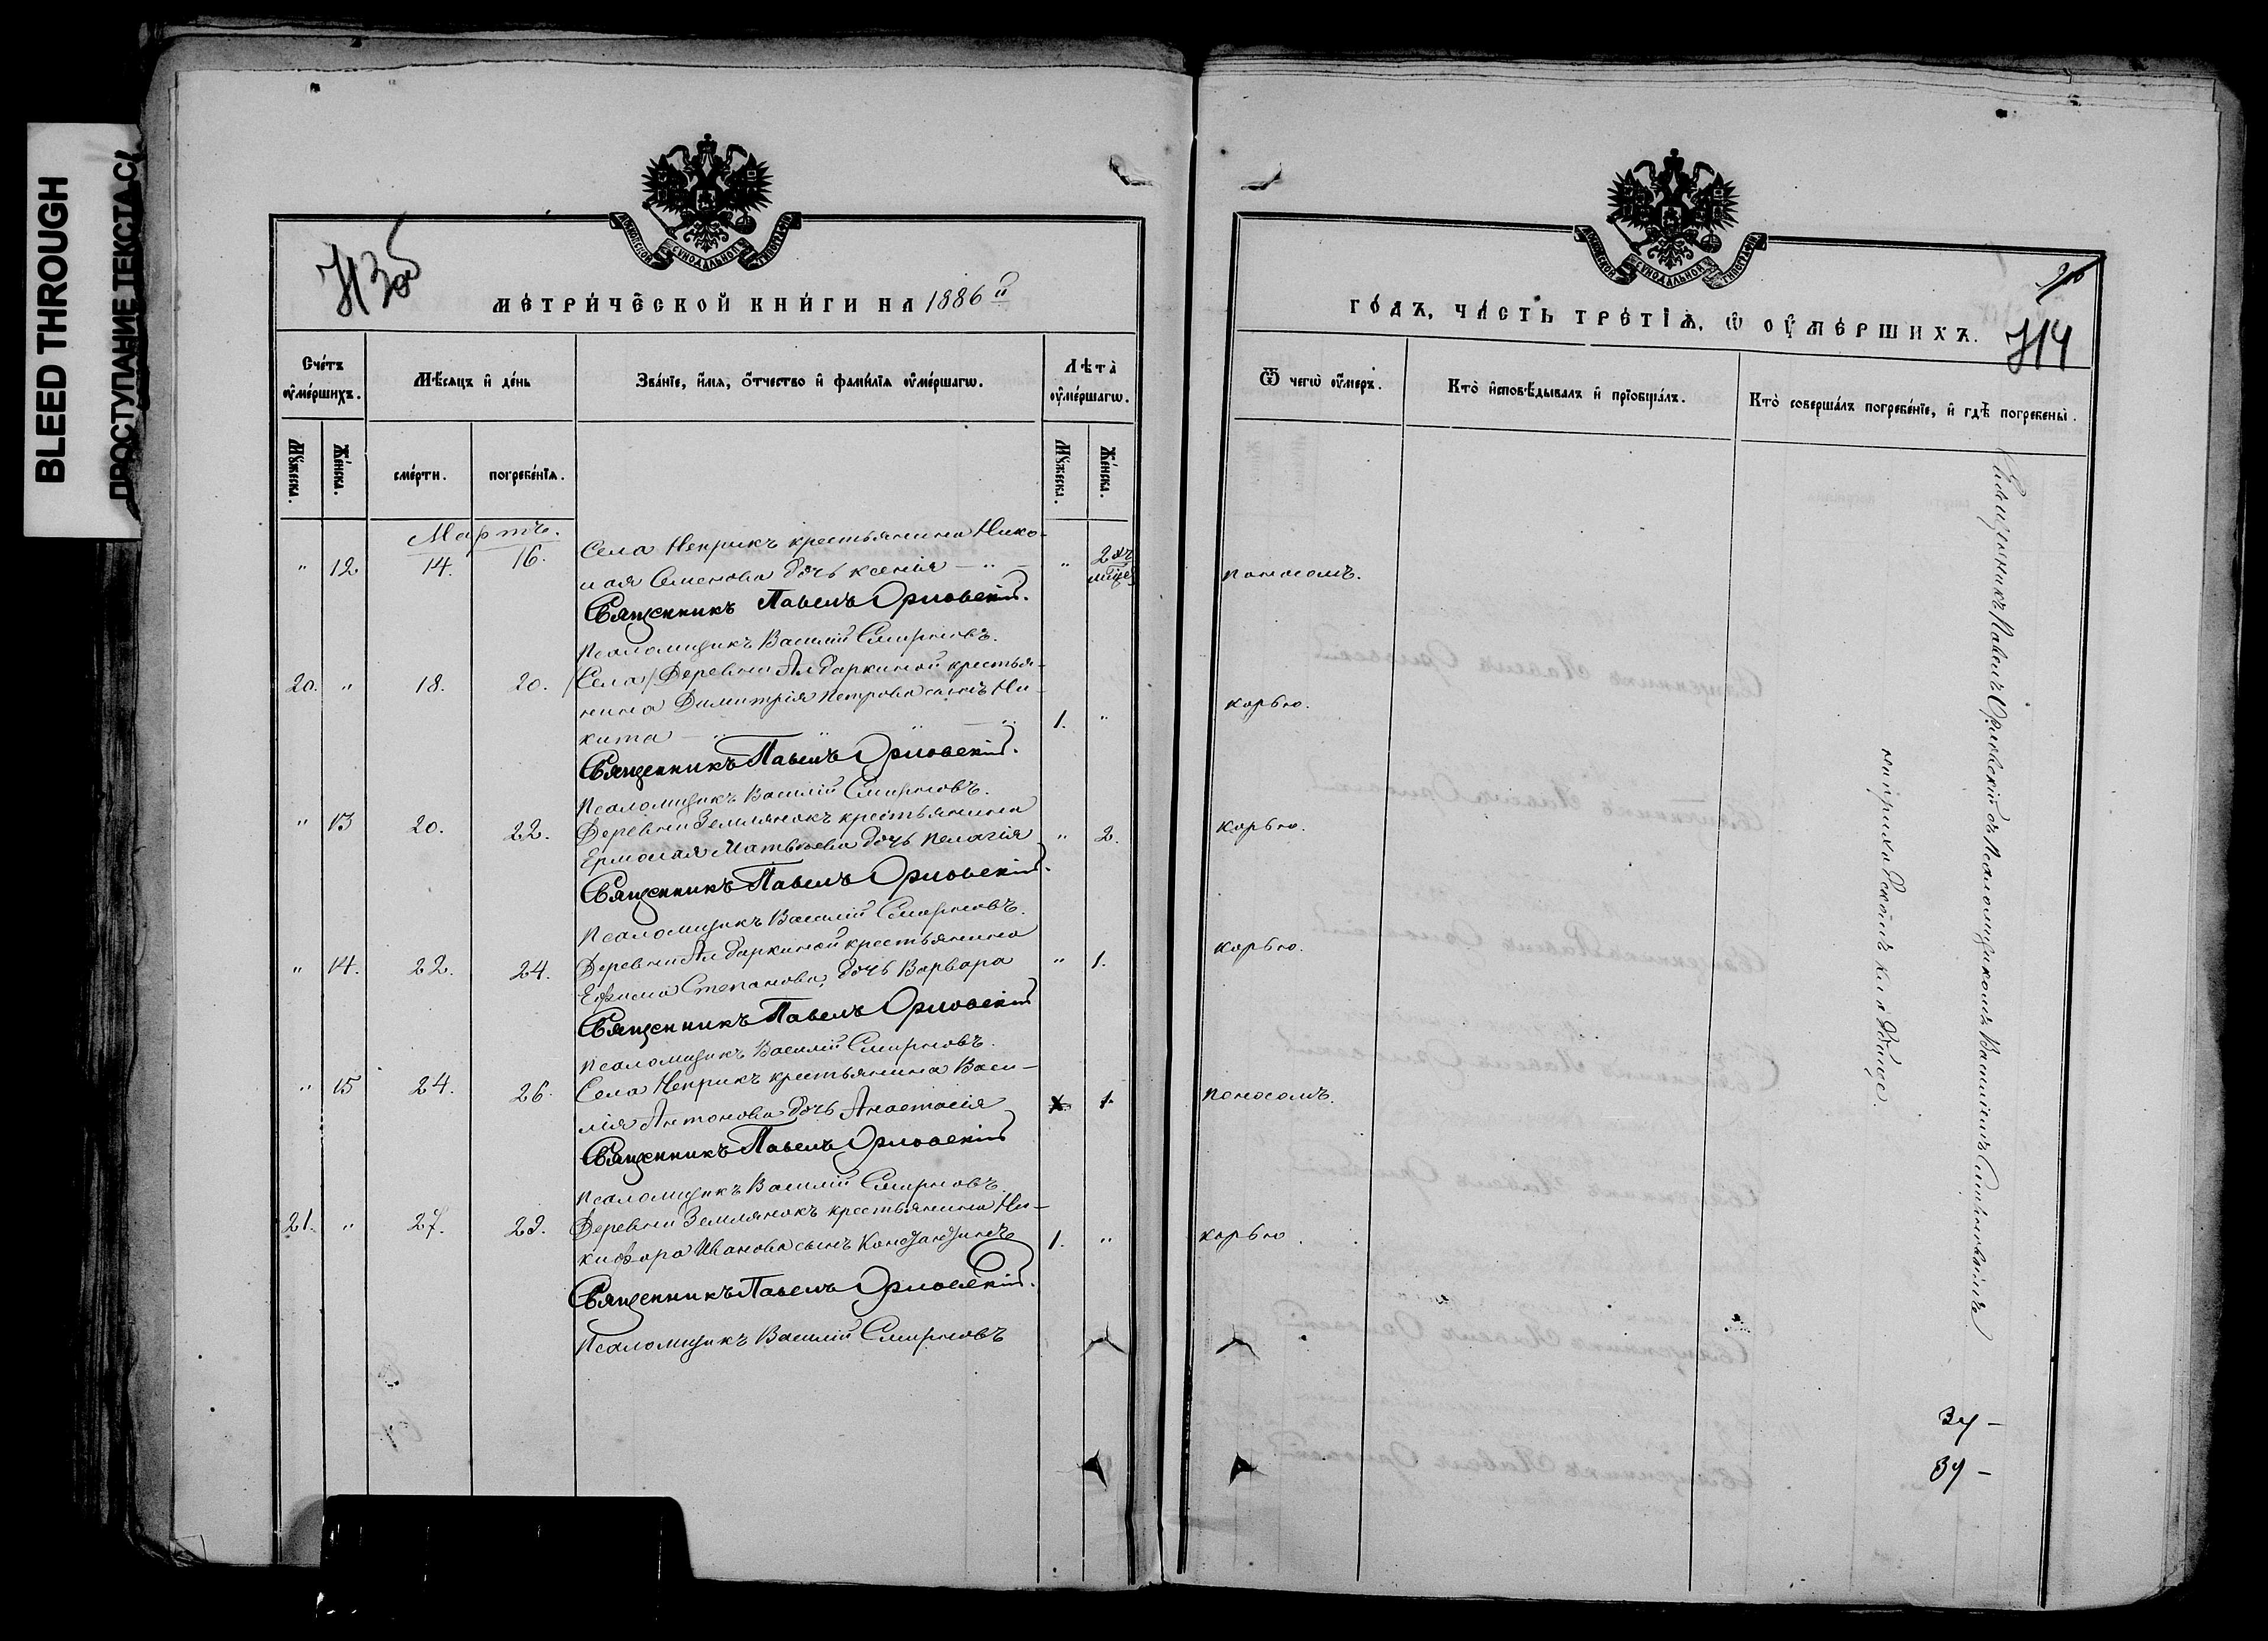 BLEED THROUGH
ПРОСТУПАНИЕ ТЕКСТА С
МОСКОВСКОЙ СѴНОДАЛЬНОЙ ТИПОГРАФІИ
МЕТРИЧЕСКОЙ КНИГИ НА 1886 й
Счетъ оумершихъ.
Мѣсяцъ и день
Званіе, имя, отчество и фамилія оумершагѡ.
Лѣта оумершагѡ.
Мужеска.
Женска.
смерти.
погребенія.
Мужеска.
Женска.
Мартъ.
" 12 14. 16. Села Неприкъ крестьянина Нико-
лая Семенова дочь Ксенія — " — " 2 хъ мѣсяц
Священникъ Павелъ Орловскій.
Псаломщикъ Василій Смирновъ.
20. " 18. 20. /Села/ Деревни Алдаркиной крестья-
нина Димитрія Петрова сынъ Ни-
кита — " — " — " 1. "
Священникъ Павелъ Орловскій.
Псаломщикъ Василій Смирновъ.
" 13 20. 22. Деревни Землянокъ крестьянина
Ермолая Матвѣева дочь Пелагія " 2.
Священникъ Павелъ Орловскій.
Псаломщикъ Василій Смирновъ.
" 14. 22. 24. Деревни Алдаркиной крестьянина
Ефима Степанова, дочь Варвара " 1.
Священникъ Павелъ Орловскій
Псаломщикъ Василій Смирновъ.
" 15 24. 26. Села Неприкъ крестьянина Васи-
лія Антонова дочь Анастасія 1.
Священникъ Павелъ Орловскій
Псаломщикъ Василій Смирновъ.
21. " 27. 29. Деревни Землянокъ крестьянина Ни-
кифора Иванова сынъ Константинъ 1. "
Священникъ Павелъ Орловскій.
Псаломщикъ Василій Смирновъ
МОСКОВСКОЙ СѴНОДАЛЬНОЙ ТИПОГРАФІИ
ГОДЪ, ЧАСТЬ ТРЕТІЯ, Ѡ ОУМЕРШИХЪ.
714
Ѿ чегѡ оумеръ.
Кто исповѣдывалъ и пріобщалъ.
Кто совершалъ погребеніе, и гдѣ погребены.
поносомъ.
корью.
корью.
корью.
поносомъ.
корью.
Священникъ Павелъ Орловскій съ Псаломщикомъ Василіемъ Смирновымъ
на приходскомъ кладбищѣ.